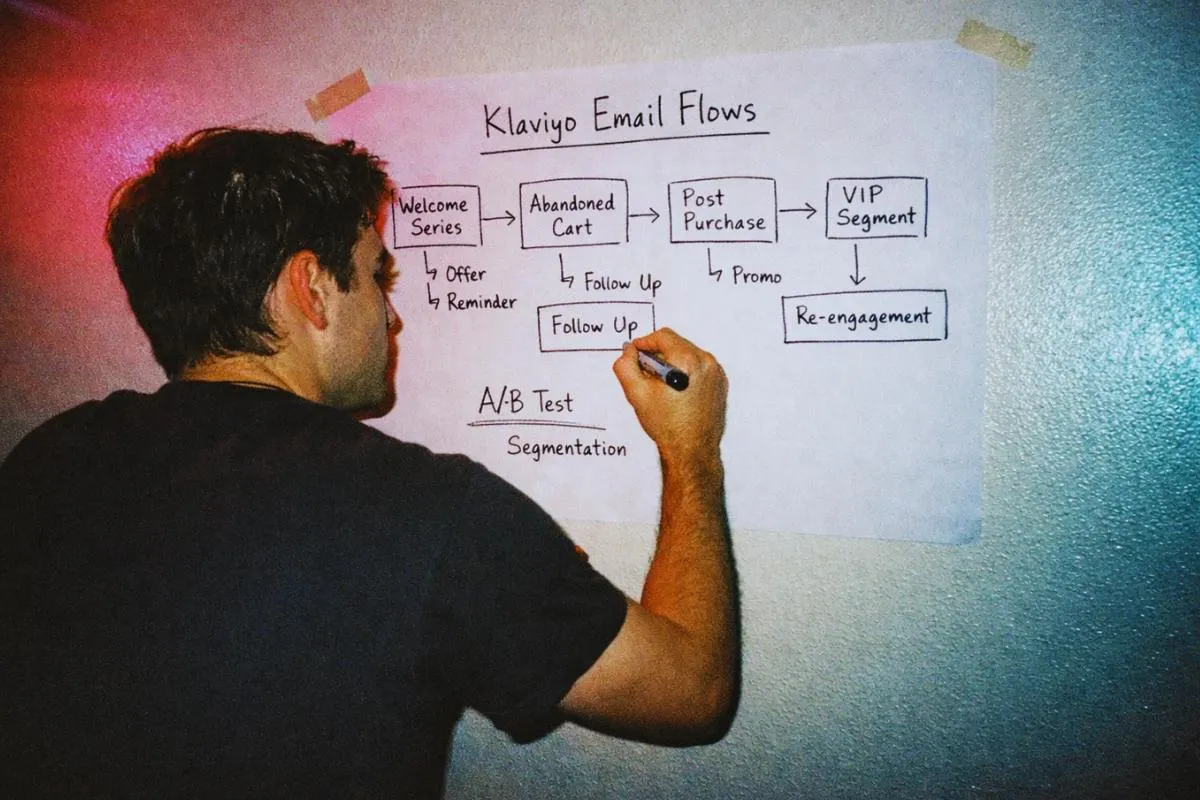 Klaviyo Email Flows
Welcome
Series
Abandoned
Cart
Post
Purchase
VIP
Segment
Offer
Reminder
Follow Up
Promo
Follow Up
Re-engagement
A/B Test
Segmentation